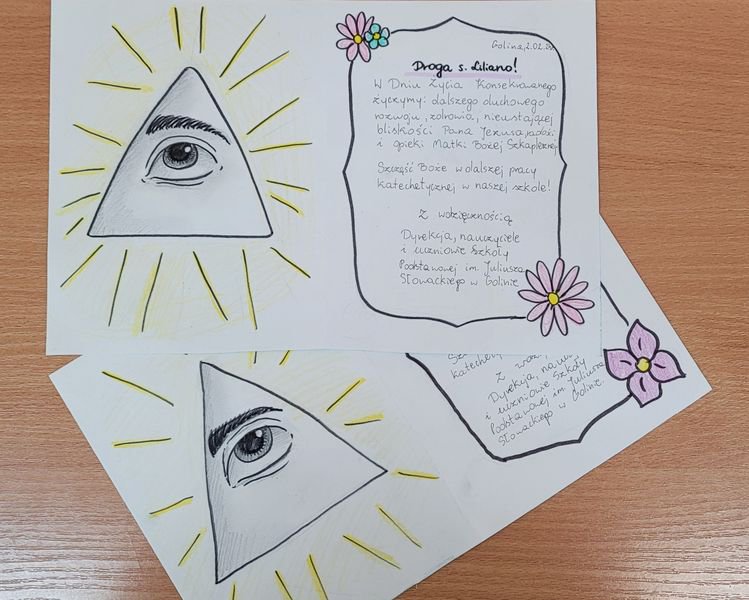 Golina, 2.02.
Droga s. Liliano!
W Dniu Życia Konsekrowanego
życzymy: dalszego duchowego
rozwoju, zdrowia, nieustającej
bliskości Pana Jezusa, radości
i opieki Matki Bożej Szkaplerznej
Szczęść Boże w dalszej pracy
katechetycznej w naszej szkole!
Z wdzięcznością
Dyrekcja, nauczyciele
i uczniowie Szkoły
Podstawowej im. Juliusza
Słowackiego w Golinie
katechety
Z wdz
Dyrekcja, nauc
i uczniowie Szkoły
Podstawowej im. Juliusza
Słowackiego w Golinie.